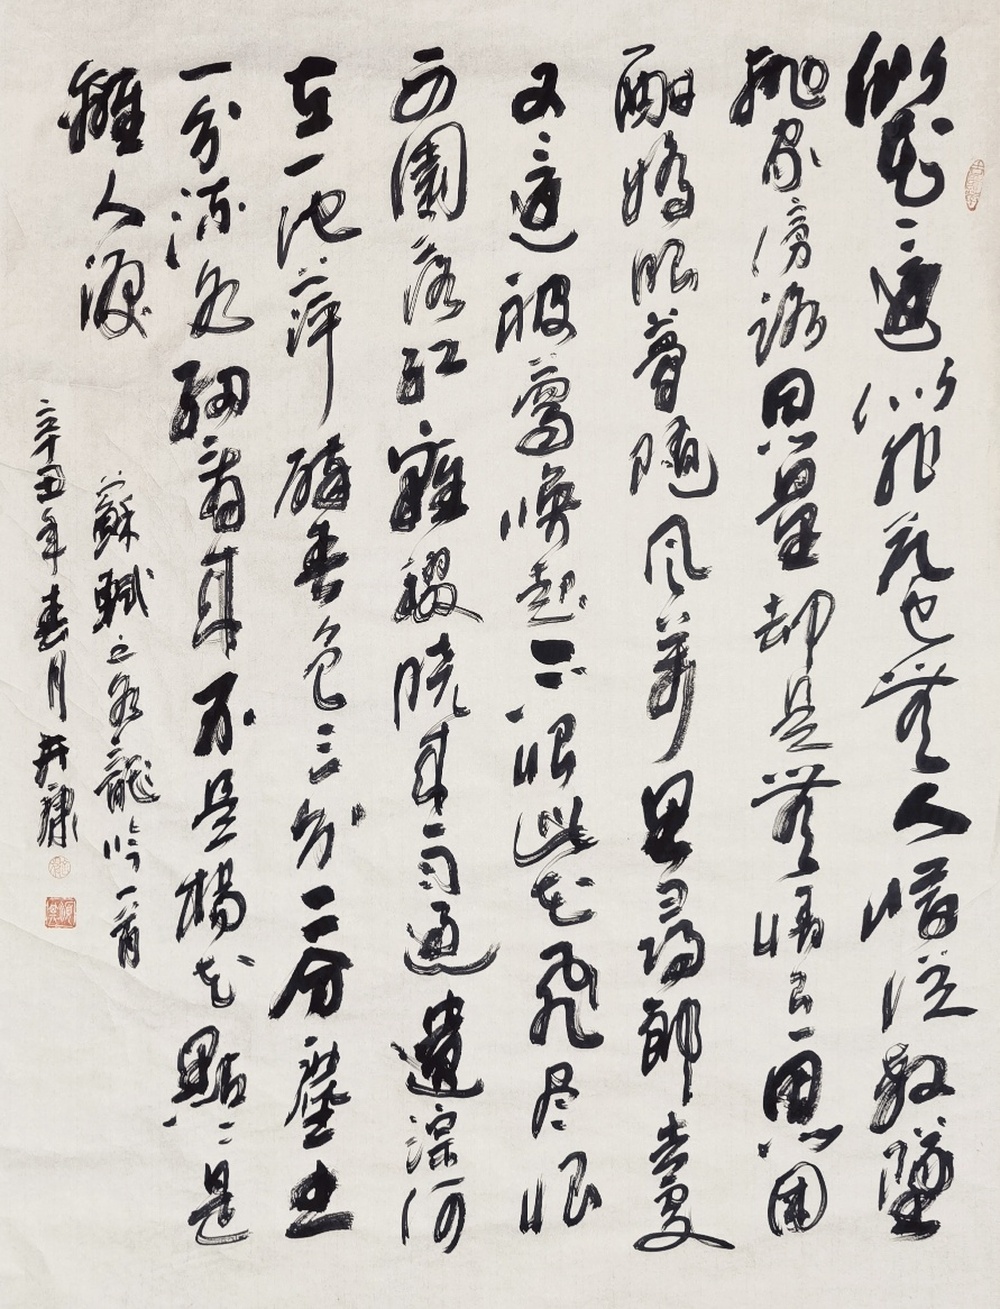 似花還似非花也無人惜從教墜
拋家傍路思量却是無情有思困
酣嬌眼夢隨風萬里尋郎去處
又還被鶯喚起不恨此花飛尽恨
西園落紅難綴曉來雨過遺蹤何
在一池萍碎春色三分二分塵土
一分流水細看來不是楊花點々是
離人淚
蘇軾之水龍吟一首
辛丑年春月